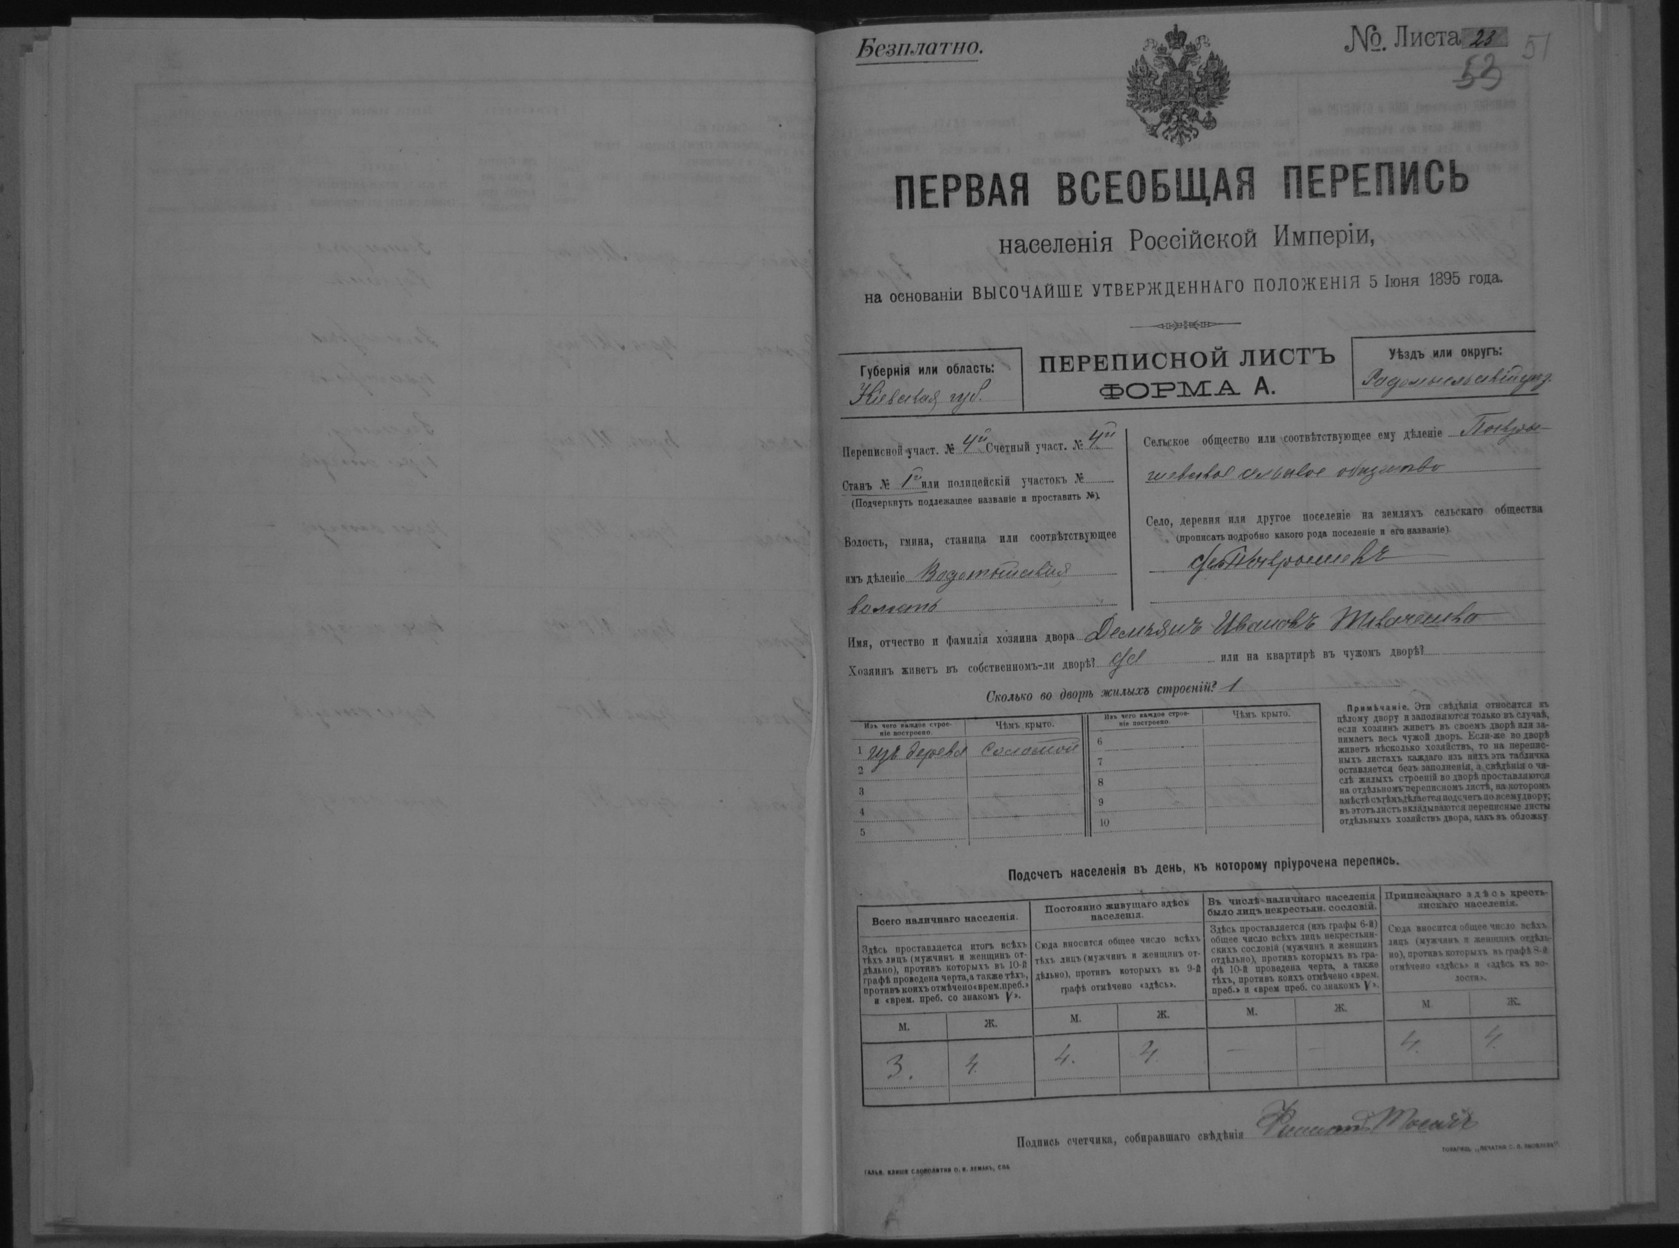 Безплатно.
№. Листа 23
51
53
ПЕРВАЯ ВСЕОБЩАЯ ПЕРЕПИСЬ
населенія Россійской Имперіи,
на основаніи ВЫСОЧАЙШЕ УТВЕРЖДЕННАГО ПОЛОЖЕНІЯ 5 Іюня 1895 года.
Губернія или область:
Кіевская губ.
ПЕРЕПИСНОЙ ЛИСТЪ
ФОРМА А.
Уѣздъ или округъ:
Радомысльскій уѣзд.
Переписной участ. № 4й Счетный участ. № 4й
Станъ № 1й или полицейскій участокъ №
(Подчеркнуть подлежащее названіе и проставить №).
Волость, гмина, станица или соотвѣтствующее
имъ дѣленіе
волость
Сельское общество или соотвѣтствующее ему дѣленіе
сельское общество
Село, деревня или другое поселеніе на земляхъ сельскаго общества
(прописать подробно какого рода поселеніе и его названіе)
Имя, отчество и фамилія хозяина двора Демьянъ Ивановъ Ткаченко
Хозяинъ живетъ въ собственномъ-ли дворѣ? да или на квартирѣ въ чужомъ дворѣ?
Сколько во дворѣ жилыхъ строеній? 1
Изъ чего каждое строе-
ніе построено.
Чѣмъ крыто.
1 изъ дерева соломой
2
3
4
5
Изъ чего каждое строе-
ніе построено.
Чѣмъ крыто.
6
7
8
9
10
Примѣчаніе. Эти свѣдѣнія относятся къ
цѣлому двору и заполняются только въ случаѣ,
если хозяинъ живетъ въ своемъ дворѣ или за-
нимаетъ весь чужой дворъ. Если-же во дворѣ
живетъ нѣсколько хозяйствъ, то на перепис-
ныхъ листахъ каждаго изъ нихъ эта табличка
оставляется безъ заполненія, а свѣдѣнія о чи-
слѣ жилыхъ строеній во дворѣ проставляются
на отдѣльномъ переписномъ листѣ, на которомъ
вмѣстѣ съ тѣмъ дѣлается подсчетъ по всему двору;
въ этотъ листъ вкладываются переписные листы
отдѣльныхъ хозяйствъ двора, какъ въ обложку.
Подсчетъ населенія въ день, къ которому пріурочена перепись.
Всего наличнаго населенія.
Здѣсь проставляется итогъ всѣхъ
тѣхъ лицъ (мужчинъ и женщинъ от-
дѣльно), противъ которыхъ въ 10-й
графѣ проведена черта, а также тѣхъ,
противъ коихъ отмѣчено «врем. преб.»
и «врем. преб. со знакомъ V».
М. Ж.
3. 4.
Постоянно живущаго здѣсь
населенія.
Сюда вносится общее число всѣхъ
тѣхъ лицъ (мужчинъ и женщинъ от-
дѣльно), противъ которыхъ въ 9-й
графѣ отмѣчено «здѣсь».
М. Ж.
4. 4.
Въ числѣ наличнаго населенія
было лицъ некрестьян. сословій.
Здѣсь проставляется (изъ графы 6-й)
общее число всѣхъ лицъ некрестьян-
скихъ сословій (мужчинъ и женщинъ
отдѣльно), противъ которыхъ въ гра-
фѣ 10-й проведена черта, а также
тѣхъ, противъ коихъ отмѣчено «врем.
преб.» и «врем преб. со знакомъ V».
М. Ж.
– –
Приписаннаго здѣсь кресть-
янскаго населенія.
Сюда вносится общее число всѣхъ
лицъ (мужчинъ и женщинъ отдѣль-
но), противъ которыхъ въ графѣ 8-й
отмѣчено «здѣсь» и «здѣсь въ во-
лости».
М. Ж.
4. 4.
Подпись счетчика, собиравшаго свѣдѣнія